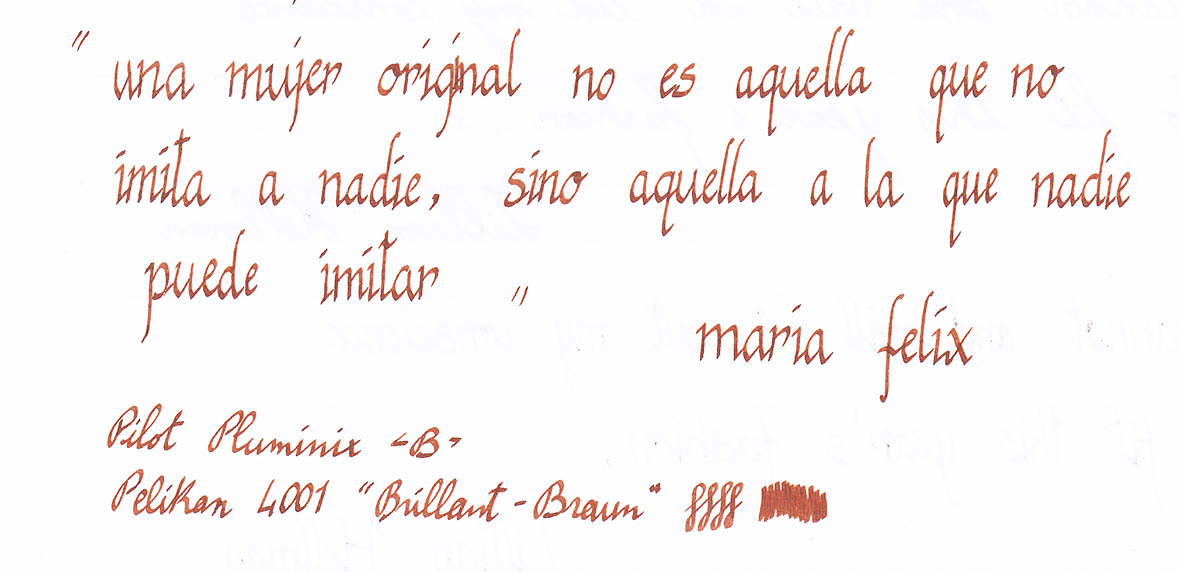 " una mujer original no es aquella que no
imita a nadie, sino aquella a la que nadie
puede imitar "
maria felix
Pilot Pluminix -B-
Pelikan 4001 "Brillant-Braun"